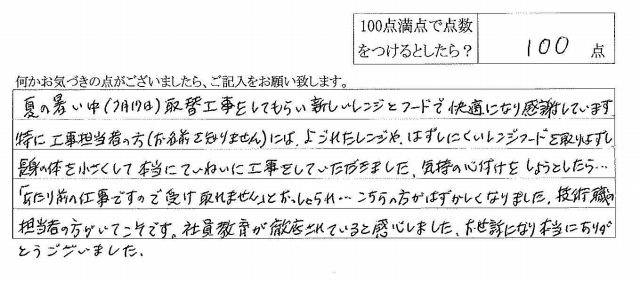 100点満点で点数
をつけるとしたら？
100 点
何かお気づきの点がございましたら、ご記入をお願い致します。
夏の暑い中(7月17日)取替工事をしてもらい新しいレンジとフードで快適になり感謝しています
特に工事担当者の方(お名前を知りません)には、よごれたレンジや、はずしにくいレンジフードを取りはずし、
長身の体を小さくして本当にていねいに工事をしていただきました、気持の心付けをしようとしたら…
「あたり前の仕事ですので受け取れません」とおっしゃられ…こちらの方がはずかしくなりました、技術職の
担当者の方がいてこそです。社員教育が徹底されていると感心しました、お世話になり本当にありが
とうございました、